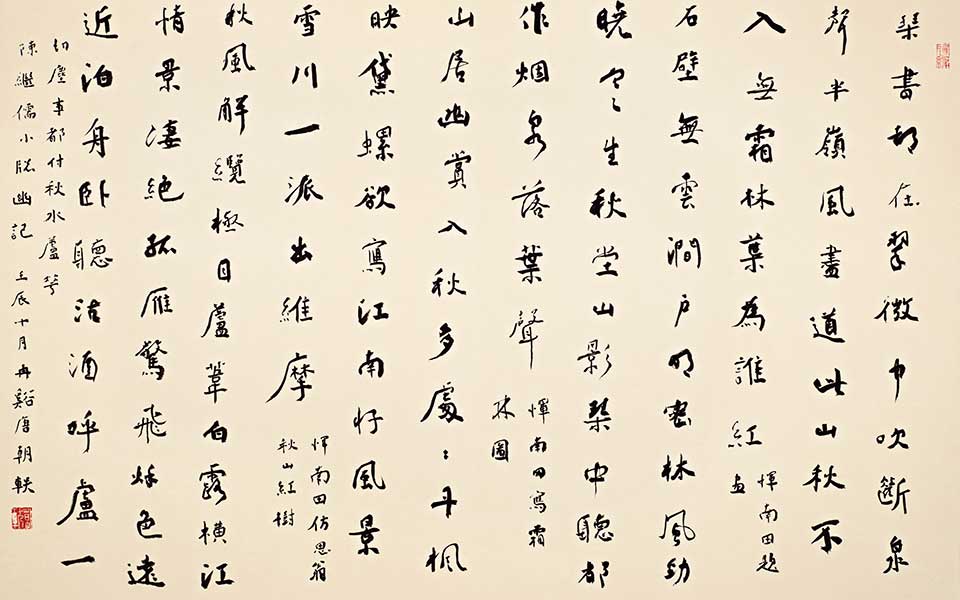 琴書都在翠微中吹斷泉
聲半嶺風盡道此山秋不
入無霜林葉為誰紅
惲南田題
畫
石壁無雲澗戶明密林風勁
曉〻生秋堂山影琴中聽都
作烟泉落葉聲
惲南田寫霜
林圖
山居幽賞入秋多處〻丹楓
映黛螺欲寫江南好風景
雪川一派出維摩
惲南田仿思翁
秋山紅樹
秋風解纜極目蘆葦白露橫江
情景凄絕孤雁驚飛秋色遠
近泊舟臥聽沽酒呼盧一
切塵事都付秋水蘆花
陳繼儒小窗幽記 壬辰十月冉谿唐朝軼